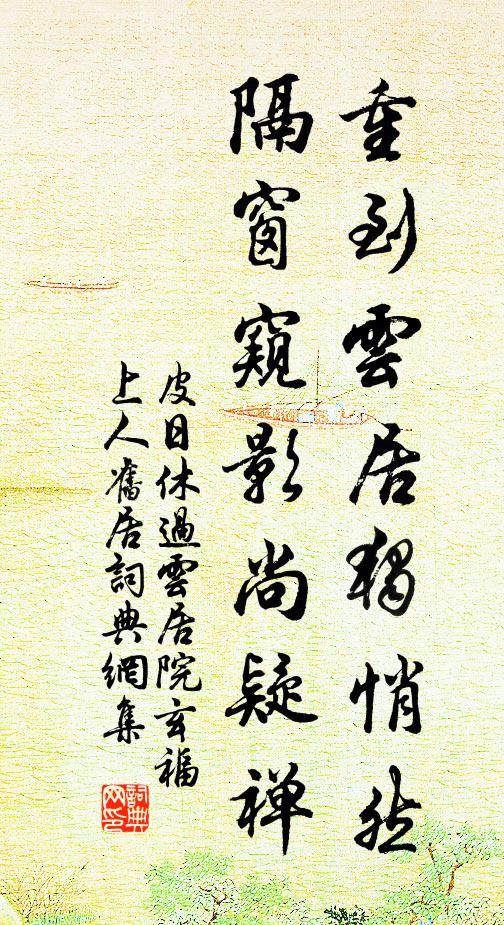 重到雲居獨悄然
隔窗窺影尚疑禅
皮日休過雲居院玄福
上人舊居詞典網集
詞典
网印